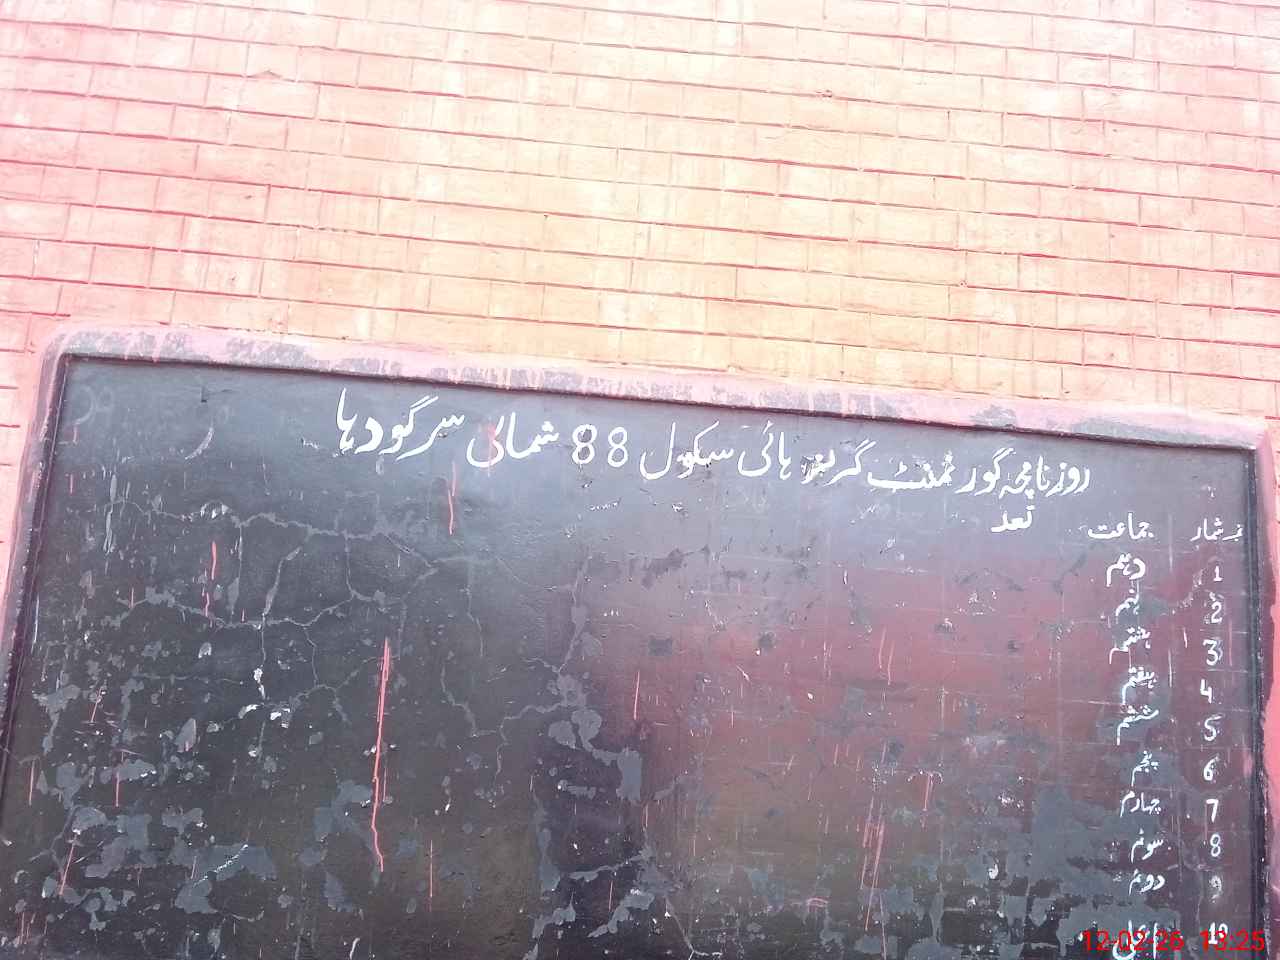 روزنامچہ گورنمنٹ گرلز ہائی سکول 88 شمالی سرگودہا
نمبر شمار جماعت تعد
1 دہم
2 نہم
3 ہشتم
4 ہفتم
5 ششم
6 پنجم
7 چہارم
8 سوئم
9 دوئم
10
12-02-26 13:25